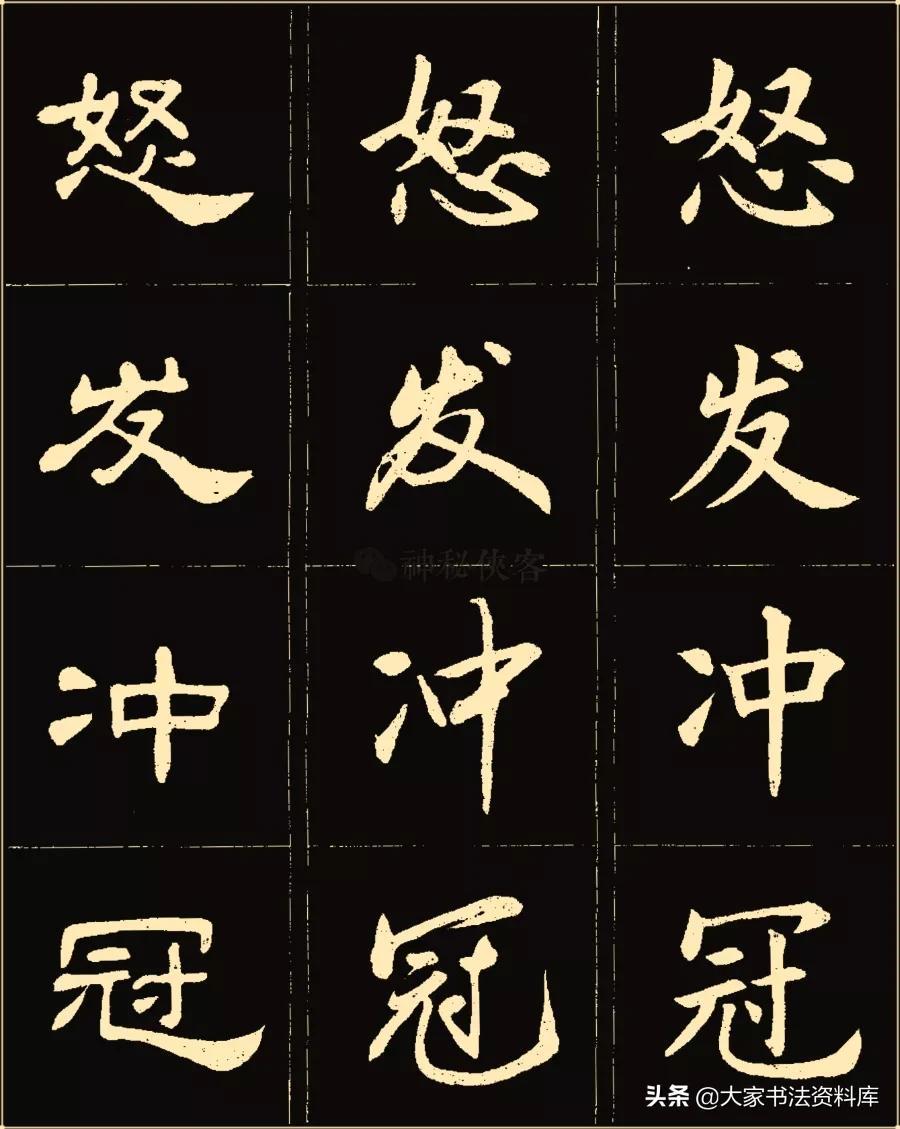 怒 怒 怒
发 发 发
神秘侠客
冲 冲 冲
冠 冠 冠
头条 @大家书法资料库